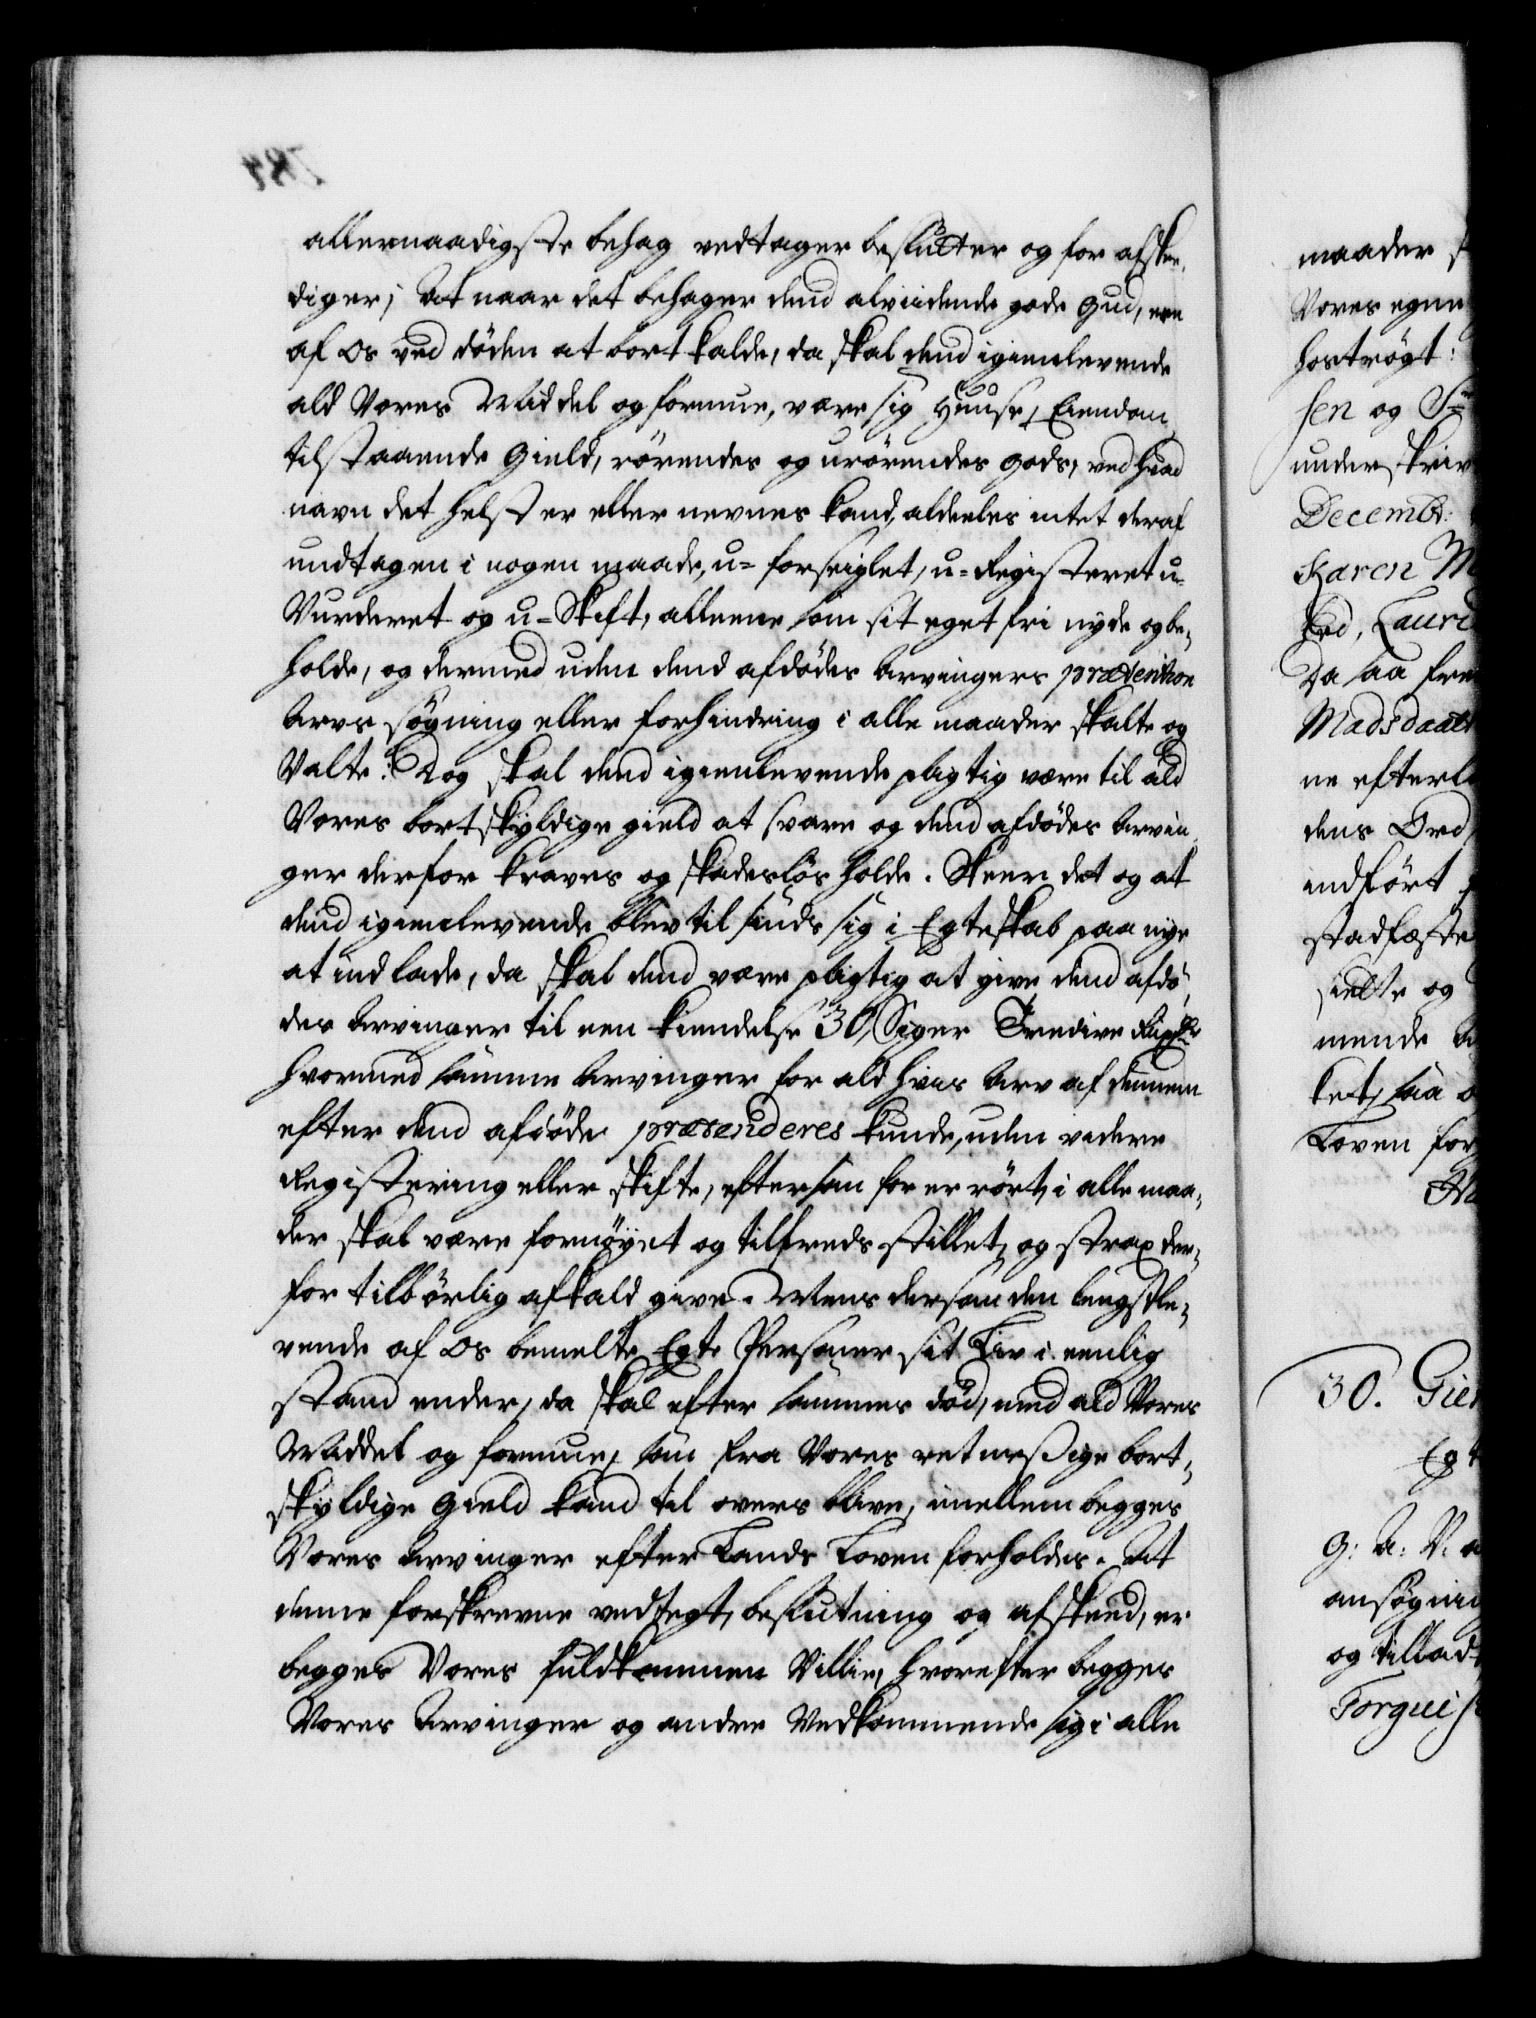 allernaadigste behag vedtager beslutter og for afskee¬
diger; At naar det behager dend alviidende gode Gud, een
af os ved döden at bort kalde, da skal dend igienlevende
ald Vores Middel og formue, være sig Huuse, Eiendom
tilstaaende Gield, rörendes og urörendes gods, ved hvad
navn det helst er eller nevnes kand, aldeeles intet deraf
undtagen i nogen maade, u-forseiglet, u-Registeret u-
Vurderet og u-Skift, alleene som sit eget fri nyde og be¬
holde, og dermed uden dend afdödes Arvingers prætention
Arvs sögning eller forhindring i alle maader skalte og
Valte: Dog skal dend igienlevende pligtig være til ald
Vores bortskyldige gield at svare og dend afdödes Arvin¬
ger derfor kraves og skadeslös holde. Skeer det og at
dend igienlevende blev til sinds sig i Egteskab paa nye
at indlade, da skal dend være pligtig at give dend afdö¬
des Arvinger til een kiendelse 30, Siger Tredive Rixdr
hvormed samme Arvinger for ald hvis Arv af dennem
efter dend afdöde prætenderes kunde, uden videre
Registering eller skifte, eftersom for er rört, i alle maa¬
der skal være fornöyet og tilfreds stillet, og strax der¬
for tilbörlig afkald give. Mens dersom den lengstle¬
vende af os bemelte Egte Personer sit Liv i eenlig
stand ender, da skal efter sammes död, med ald Vores
Middel og formue, som fra Vores retmessige bort¬
skyldige Gield kand til overs blive, imellem begges
Vores Arvinger efter Lands Loven forholdes. At
denne forskrevne vedtegt, beslutning og afskeed, er
begges Vores fuldkommen Villie, hvorefter begges
Vores Arvinger og andre Vedkommende sig i alle
maader
Vores egne
hoströgt:
sen og Sr
underskriv
Decembr:
Karen M
Ord, Laur
Da saa fre
Madsdaatt
ne efterl
dens Ord
indfört
stadfæste
sielte og
mende
ket, saa
Loven for
30. Gien
Egt
G: A: V:
ansögni
og tillad
Torgiei